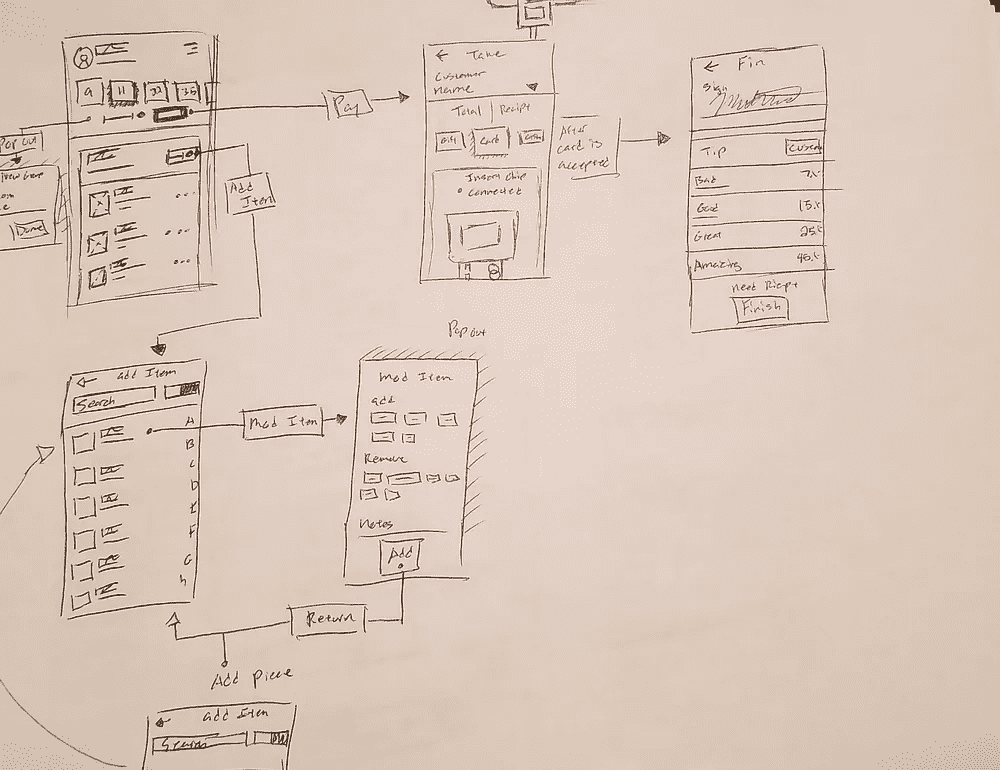 9 11 22 35
Pop out
Done
Pay
Add
Item
← Take
Customer
Name
Total | Recipt
Gift Card
Insert chip
Connected
After
card is
accepted
← Fin
Sign
Tip Custom
Bad
Good 15%
Great 25%
Amazing 45%
need Ricpt
Finish
← add Item
Search
A
B
C
D
E
F
G
h
Mod Item
Pop out
Mod Item
add
Remove
Notes
Add
Return
Add piece
← add Item
Search